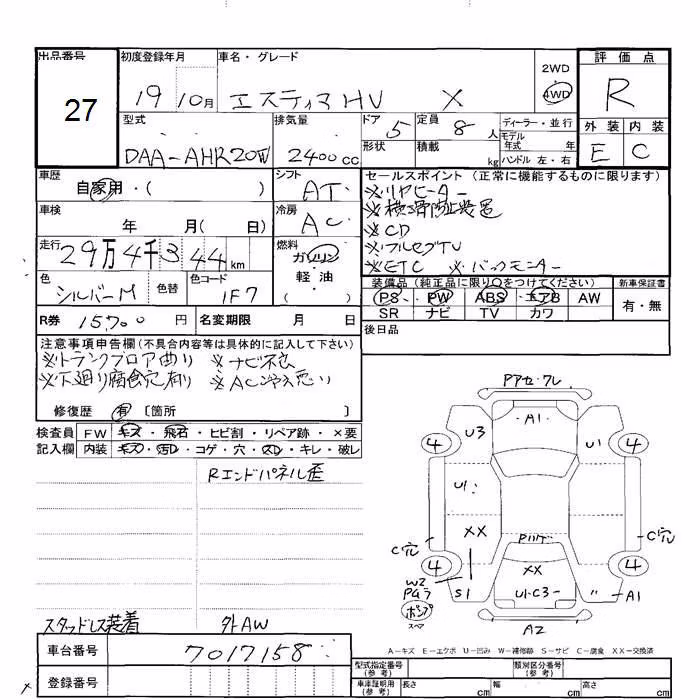 出品番号 初度登録年月 車名・グレード 評価点
27 19 10月 エスティマHV X 2WD 4WD R
型式 排気量 ドア 5 定員 8人 ディーラー・並行 外装 内装
DAA-AHR20W 2400cc 形状 積載 kg モデル年式 年 E C
ハンドル 左・右
車歴 自家用・( ) シフト AT セールスポイント(正常に機能するものに限ります)
※リヤヒーター
車検 年 月( 日) 冷房 AC ※横滑防止装置
※CD
走行 29万4千344km 燃料 ガソリン ※フルセグTV
軽・油 ※ETC ※バックモニター
色 シルバーM 色替 色コード 1F7 装備品(純正品に限り○をつけてください) 新車保証書
PS PW ABS エアB AW 有・無
SR ナビ TV カワ
R券 15700円 名変期限 月 日 後日品
注意事項申告欄(不具合内容等は具体的に記入して下さい)
※トランクフロア曲り ※ナビ不良
※下廻り腐食穴有り ※AC冷え悪い
修復歴 有 〔箇所 〕
検査員 FW キズ・飛石・ヒビ割・リペア跡・×要
記入欄 内装 キズ・汚レ・コゲ・穴・スレ・キレ・破レ
Rエンドパネル歪
アセ・クレ
A1
U3 U1
4 4
U1
XX
C穴 C穴
XX
4 4
W2
S1 U1・C3 〃 A1
ポンプ
A2
スタッドレス装着 外AW
A-キズ E-エクボ U-凹み W-補修跡 S-サビ C-腐食 XX-交換済
車台番号 7017158 型式指定番号(参考) 類別区分番号(参考)
登録番号 車庫証明用(参考) 長さ cm 幅 cm 高さ cm